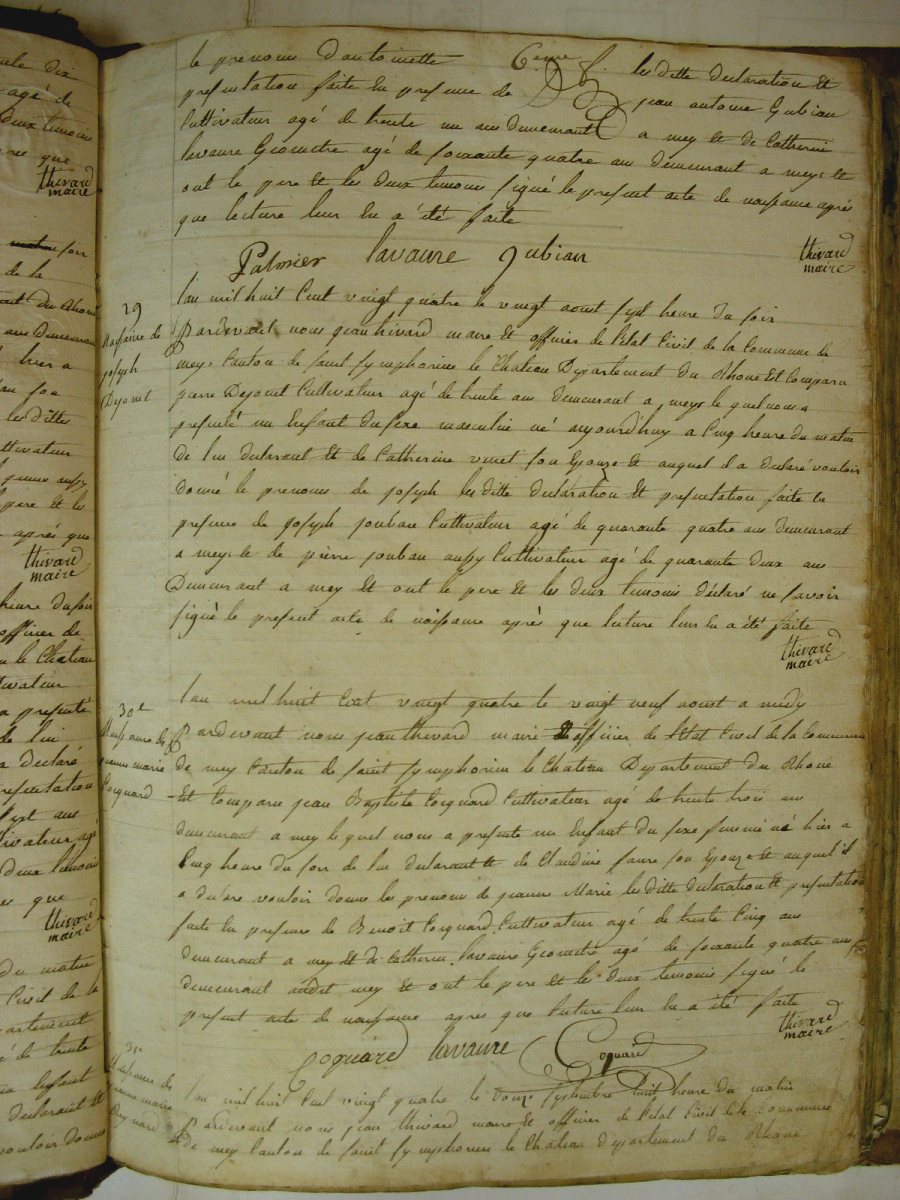 le prenoms d'antoinette 6eme f. les ditte declaration et
presentation faite en presence de jean antoine Gubian
Cultivateur agé de trente un ans demeurant a mey et de Catherin
lavaure Geometre agé de soixante quatre ans demeurant a meys et
ont le pere et les deux temoins signé le present acte de naissance après
que lecture leur en a été faite
Palmier lavaure gubian thivard
maire
29
Naissance de
joseph
Dejonet
lan mil huit cent vingt quatre le vingt aout sept heure du soir
Pardevant nous jean thivard maire et officier de l'Etat Civil de la Commune de
meys Canton de saint symphorien le Chateau Departement du Rhone est comparu
pierre Dejonet Cultivateur agé de trente ans demeurant a meys le quel nous a
presenté un Enfant du sexe masculin né aujourd'huy a Cinq heure du matin
de lui declarant et de Catherine vinet son Epouze et auquel il a declaré vouloir
donné le prenoms de joseph les ditte declaration et presentation faite en
presence de joseph joubau Cultivateur agé de quarante quatre ans demeurant
a meys et de pierre joubau aussy Cultivateur agé de quarante deux ans
Demeurant a mey et ont le pere et les deux temoins déclaré ne savoir
signé le present acte de naissance après que lecture leur en a été faite
thivard
maire
30e
Naissance de
jeanne marie
Coquard
lan mil huit cent vingt quatre le vingt neuf aoust a midy
Pardevant nous jean thivard maire et officier de l'Etat Civil de la Commune
de mey Canton de saint symphorien le Chateau Departement du Rhone
Est Comparu jean Baptiste Coquard Cultivateur agé de trente trois ans
demeurant a mey le quel nous a presenté un Enfant du sexe feminé né hier a
Cinq heure du soir de lui declarant et de Claudine faure son Epouze et auquel il
a declare vouloir donné les prenoms de jeanne Marie les ditte declaration et presentation
faite en presence de Benoit Coquard Cultivateur agé de trente Cinq ans
demeurant a mey et de Catherin lavaure Geometre agé de soixante quatre ans
demeurant audit mey et ont le pere et les deux temoins signé le
present acte de naissance apres que lecture leur en a été faite
thivard
maire
Coquard lavaure Coquard
31e
Naissance de
jeanne marie
lan mil huit cent vingt quatre le douze septembre huit heure du matin
Pardevant nous jean thivard maire et officier de l'etat Civil de la Commune
de mey Canton de saint symphorien le Chateau departement du Rhone